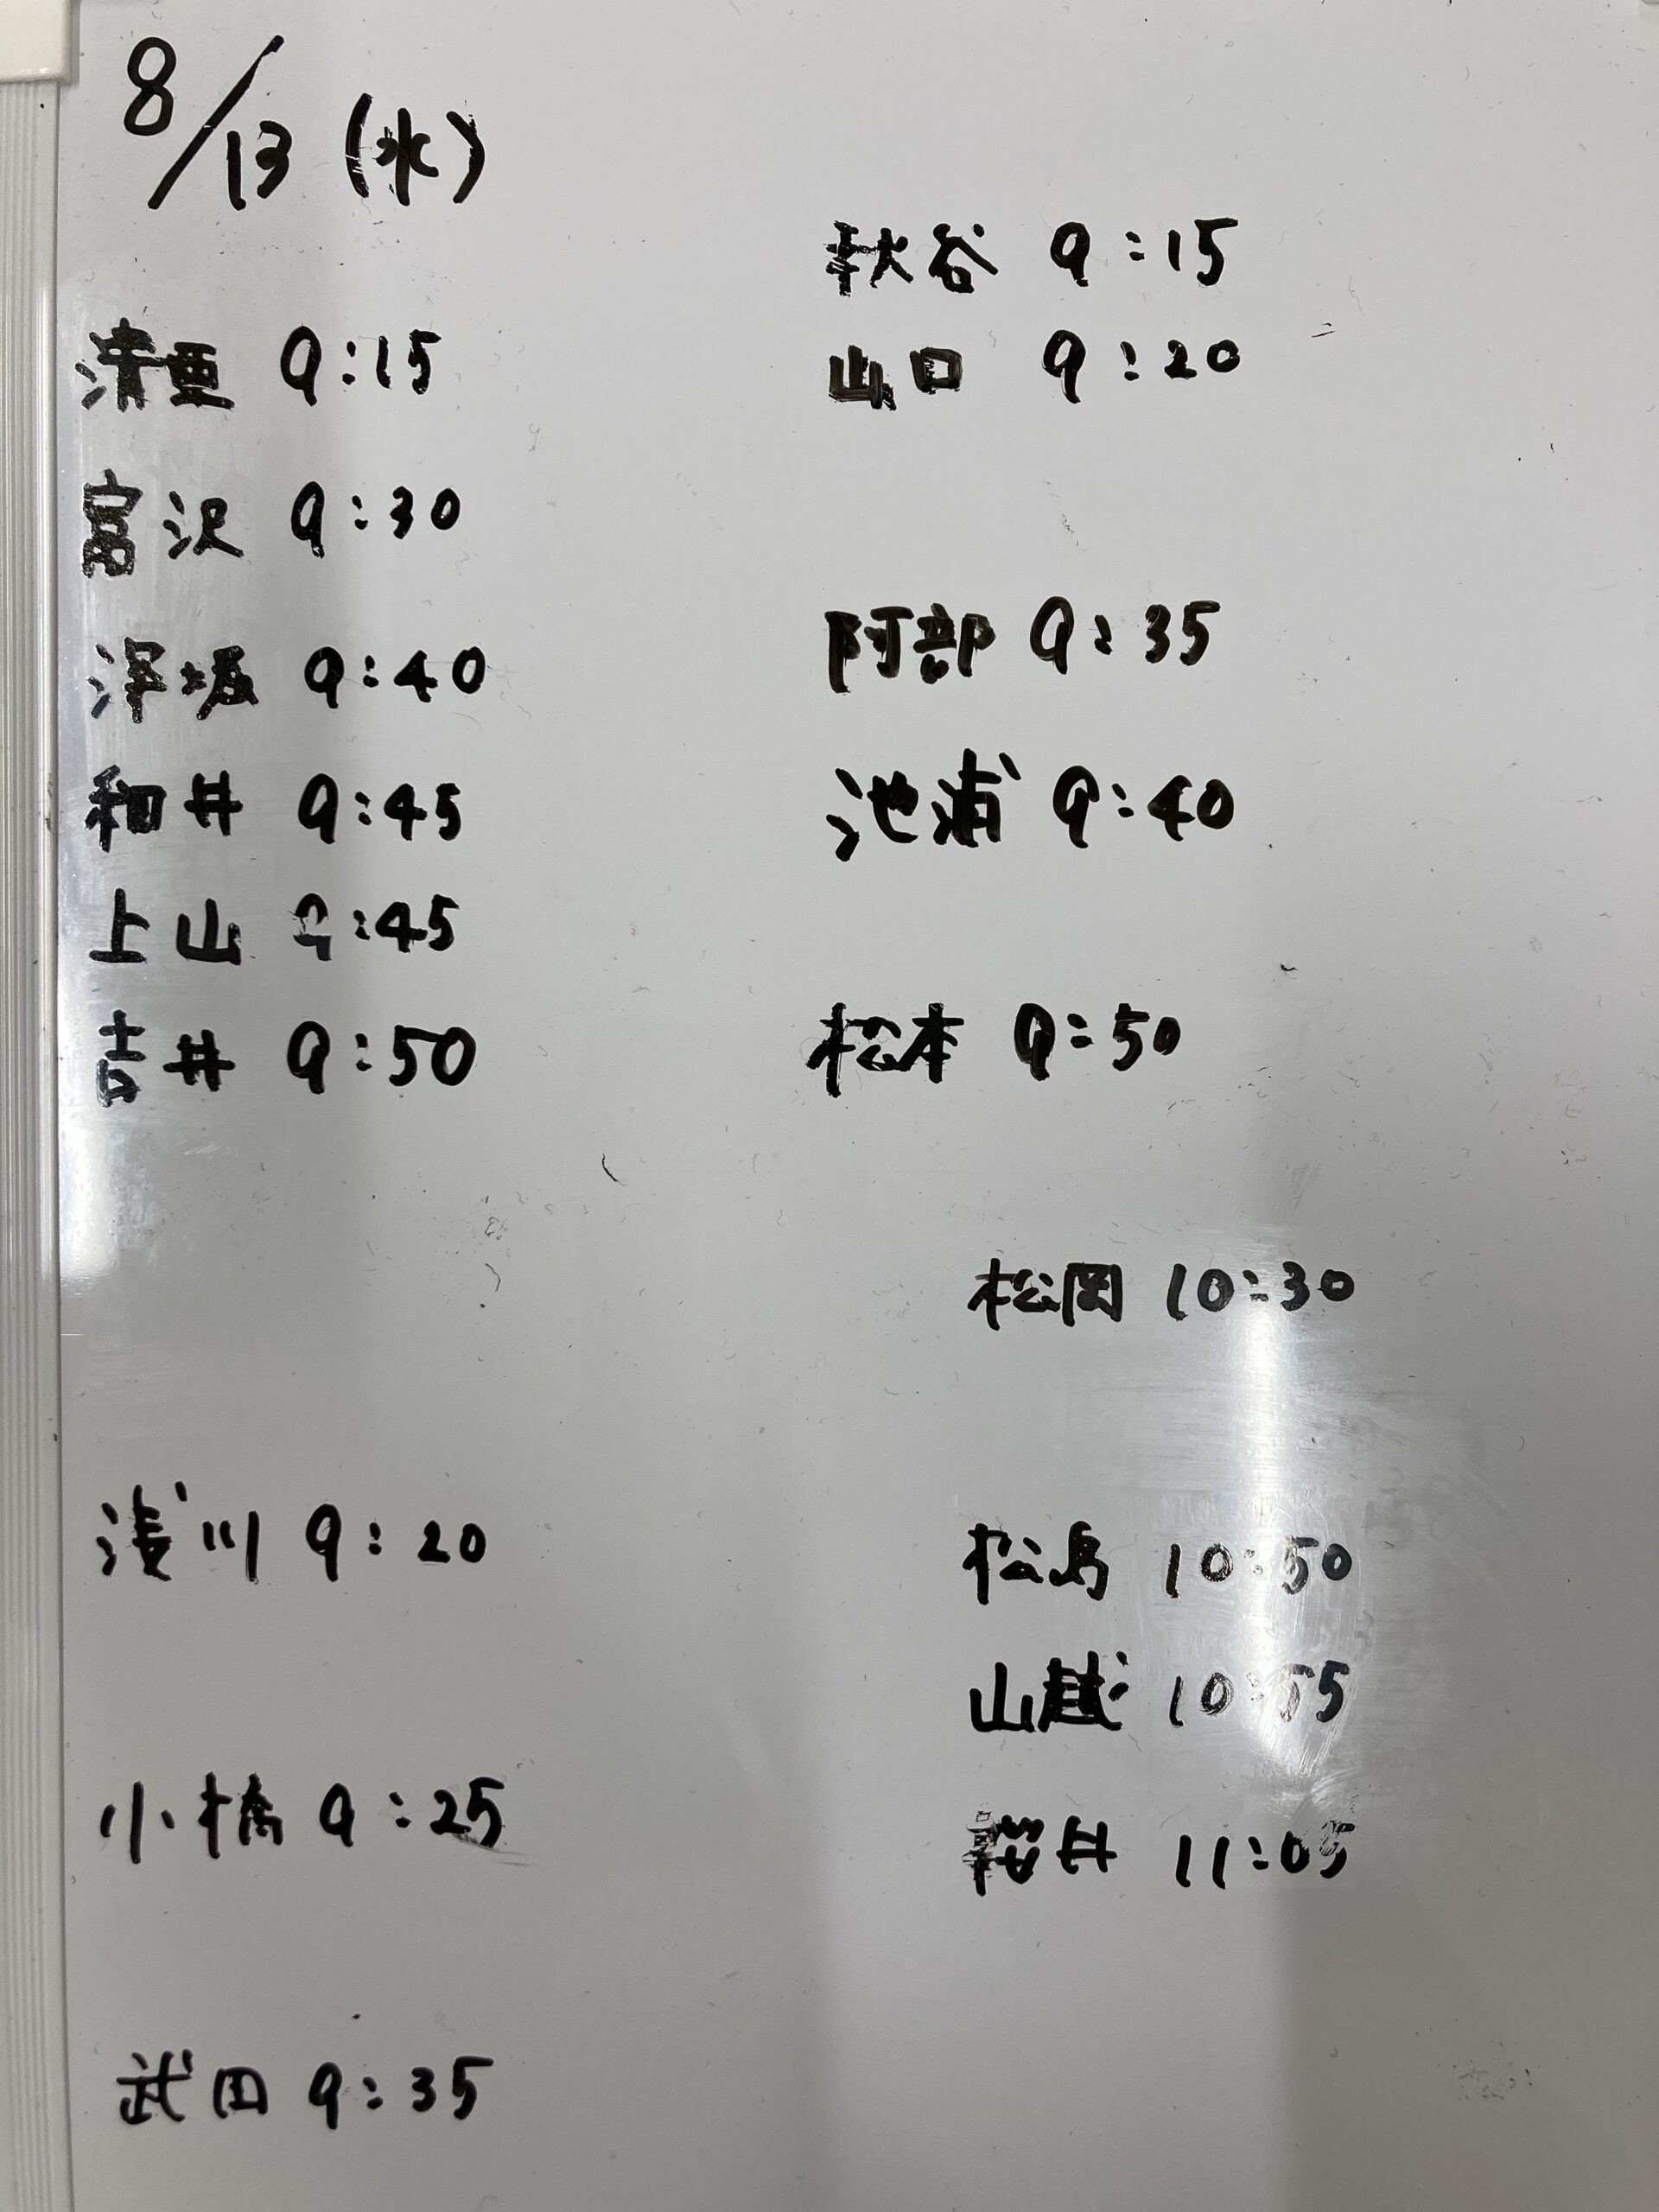 8/13 (水)
清里 9:15
富沢 9:30
深堀 9:40
和井 9:45
上山 9:45
吉井 9:50
浅川 9:20
小橋 9:25
武田 9:35
秋谷 9:15
山口 9:20
阿部 9:35
池浦 9:40
松本 9:50
松岡 10:30
松島 10:50
山越 10:55
桜井 11:05